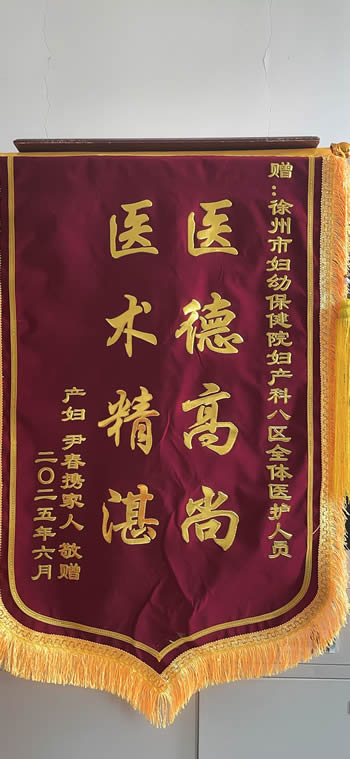 赠：徐州市妇幼保健院妇产科八区全体医护人员
医德高尚
医术精湛
产妇 尹春携家人 敬赠
二〇二五年六月